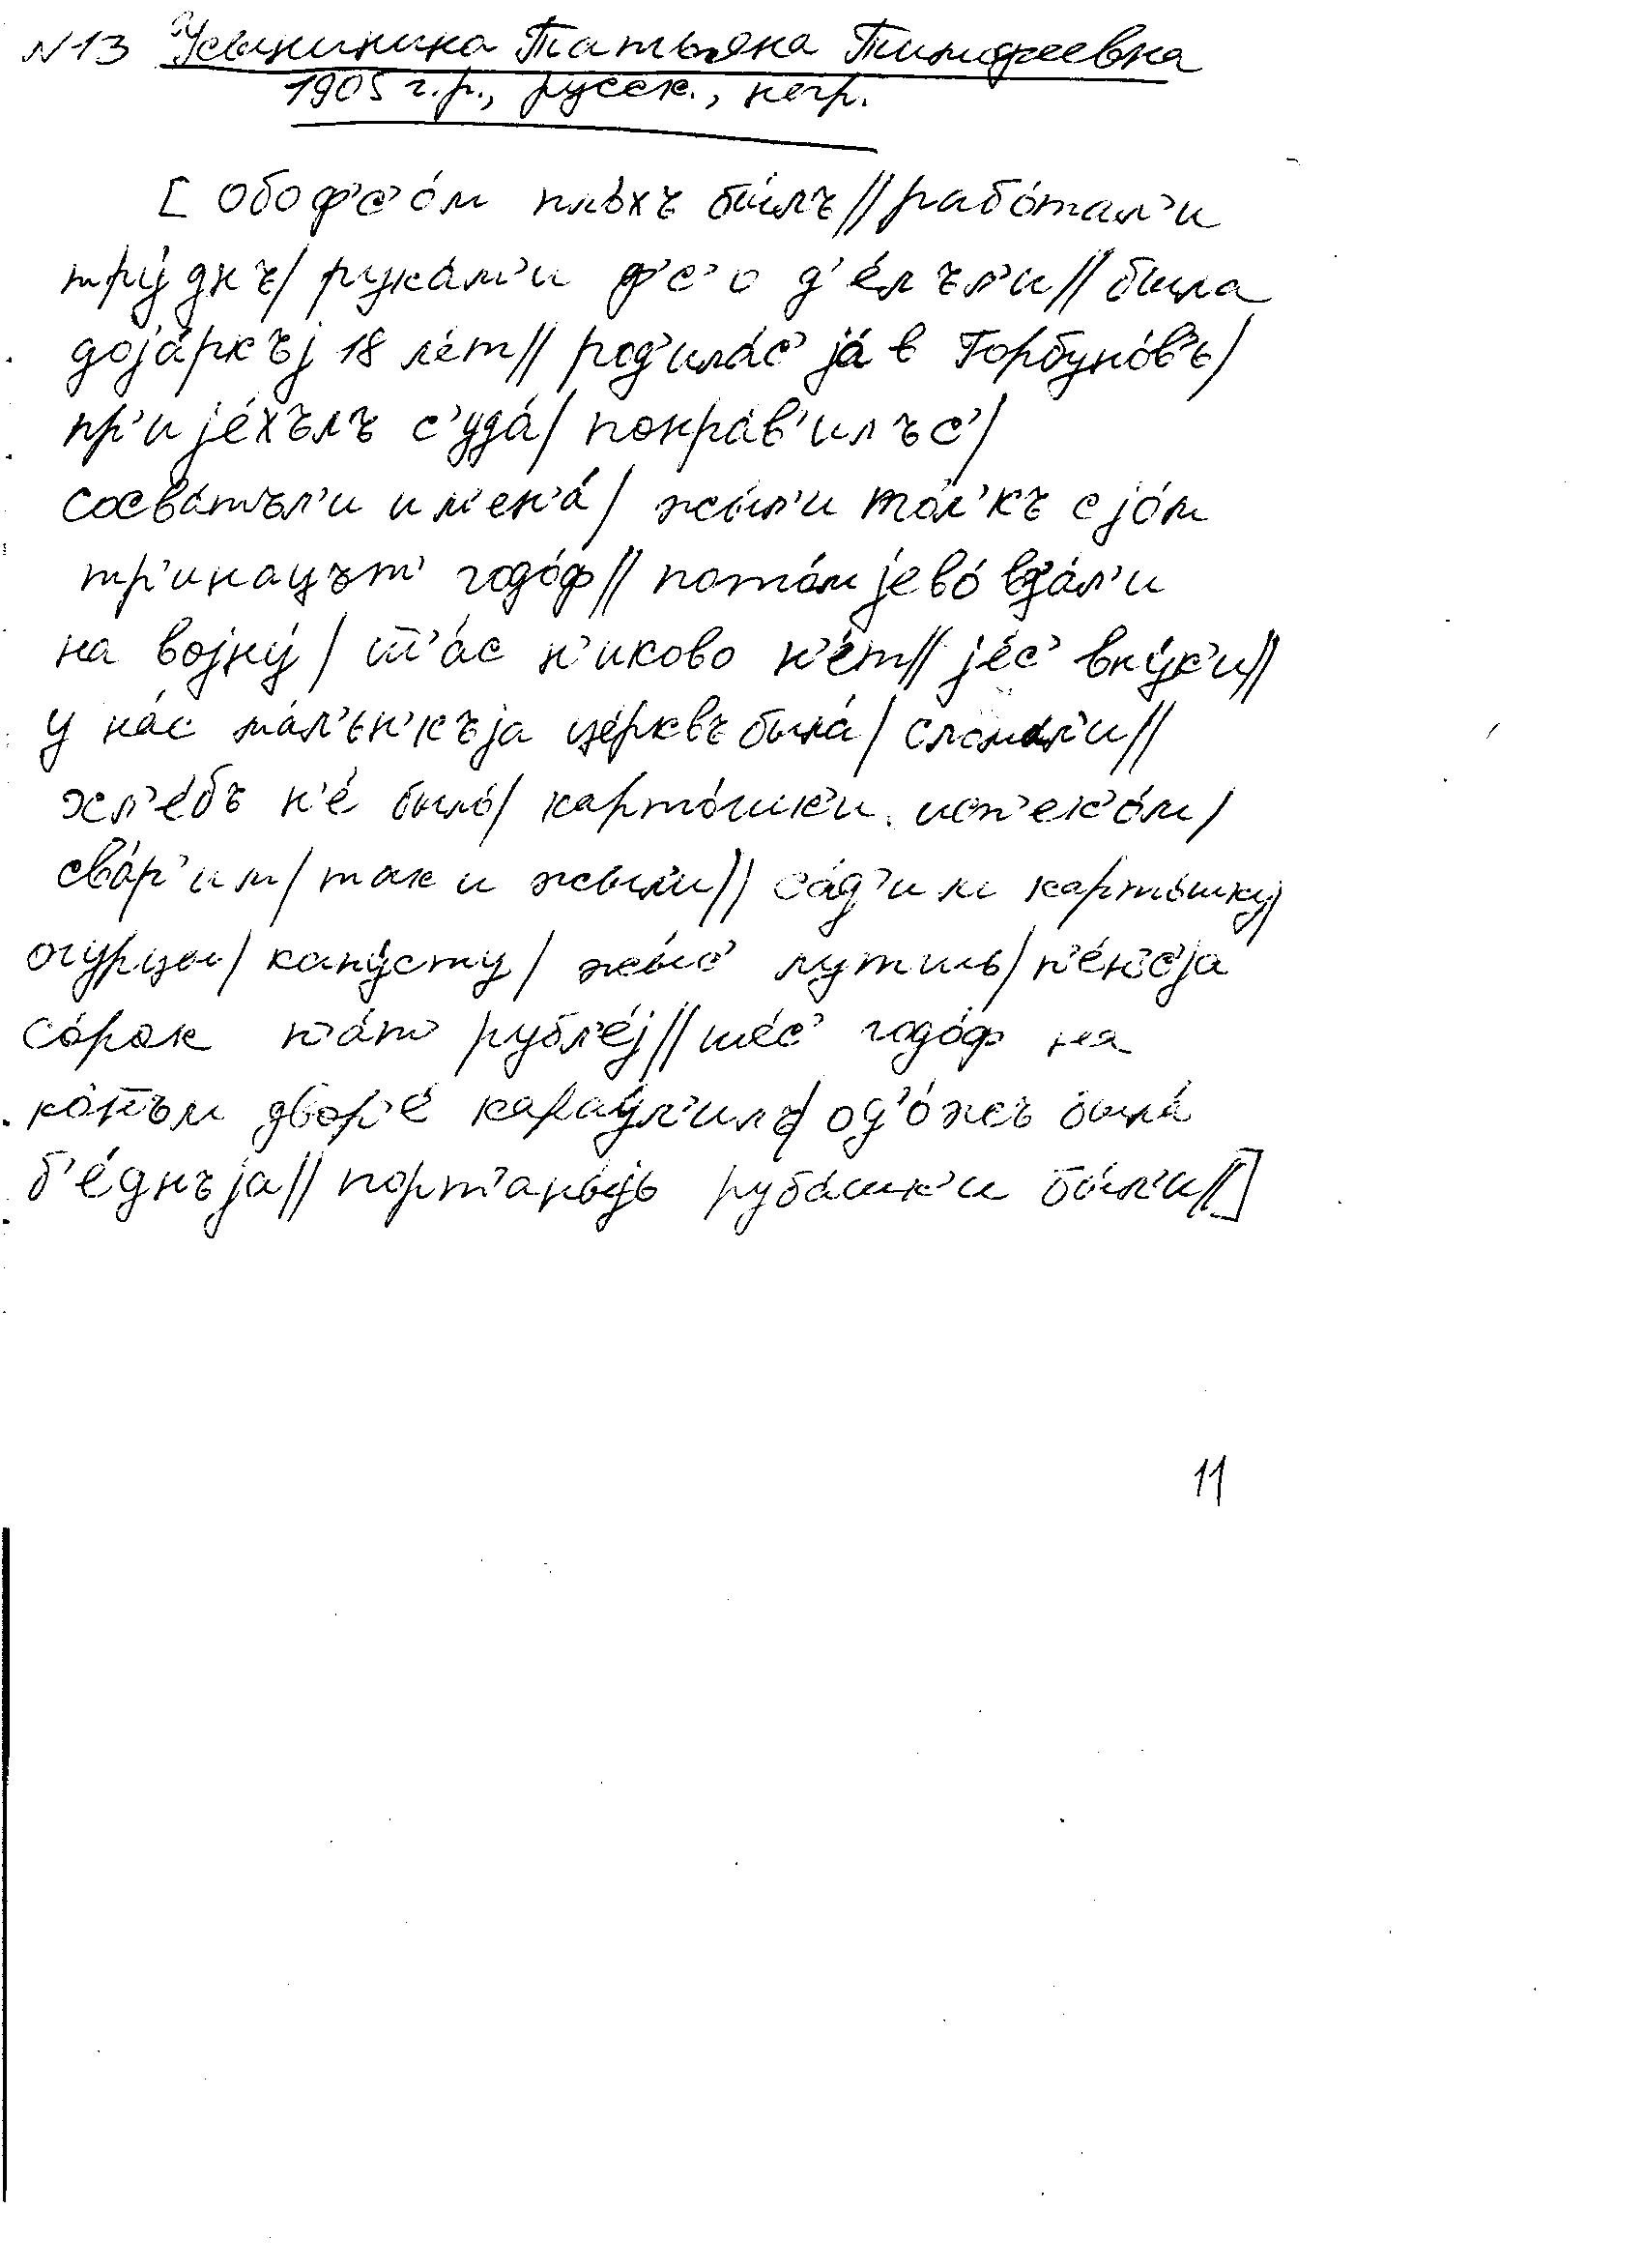 N13 Усынинина Татьяна Тимофеевна
1905 г.р., русск., негр.
[ Обоф'с'о́м пло́хъ бы́лъ // рабо́тал'и
тру́днъ / рука́м'и ф'с'о д'е́лъл'и // была
доjа́ркъj 18 ле́т // род'ила́с' jа́ в Горбуно́в'ь /
пр'иjе́хълъ с'уда́ / понра́в'илъс' /
сосва́тъл'и и м'ен'а́ / жы́л'и то́л'къ с jо́м
тр'инацът' годо́ф // пото́м jево́ вз'а́л'и
на воjну́ / т'а́с н'иково н'е́т // jе́с' вну́к'и //
у на́с ма́л'ьн'къjа це́рквъ была́ / слома́л'и //
хл'е́бъ н'е́ было / карто́шк'и исп'ек'о́м /
сва́р'им / так и жыл'и // са́д'им карто́шку /
огурцы / капу́сту / жы́с' лутшь / п'е́нс'jа
со́рок п'а́т' рубл'е́j // ше́с' годо́ф на
ко́нъм двор'е́ карау́л'илъ / од'о́жъ была́
б'е́днъjа // порт'аны́jь руба́шк'и бы́л'и // ]
11